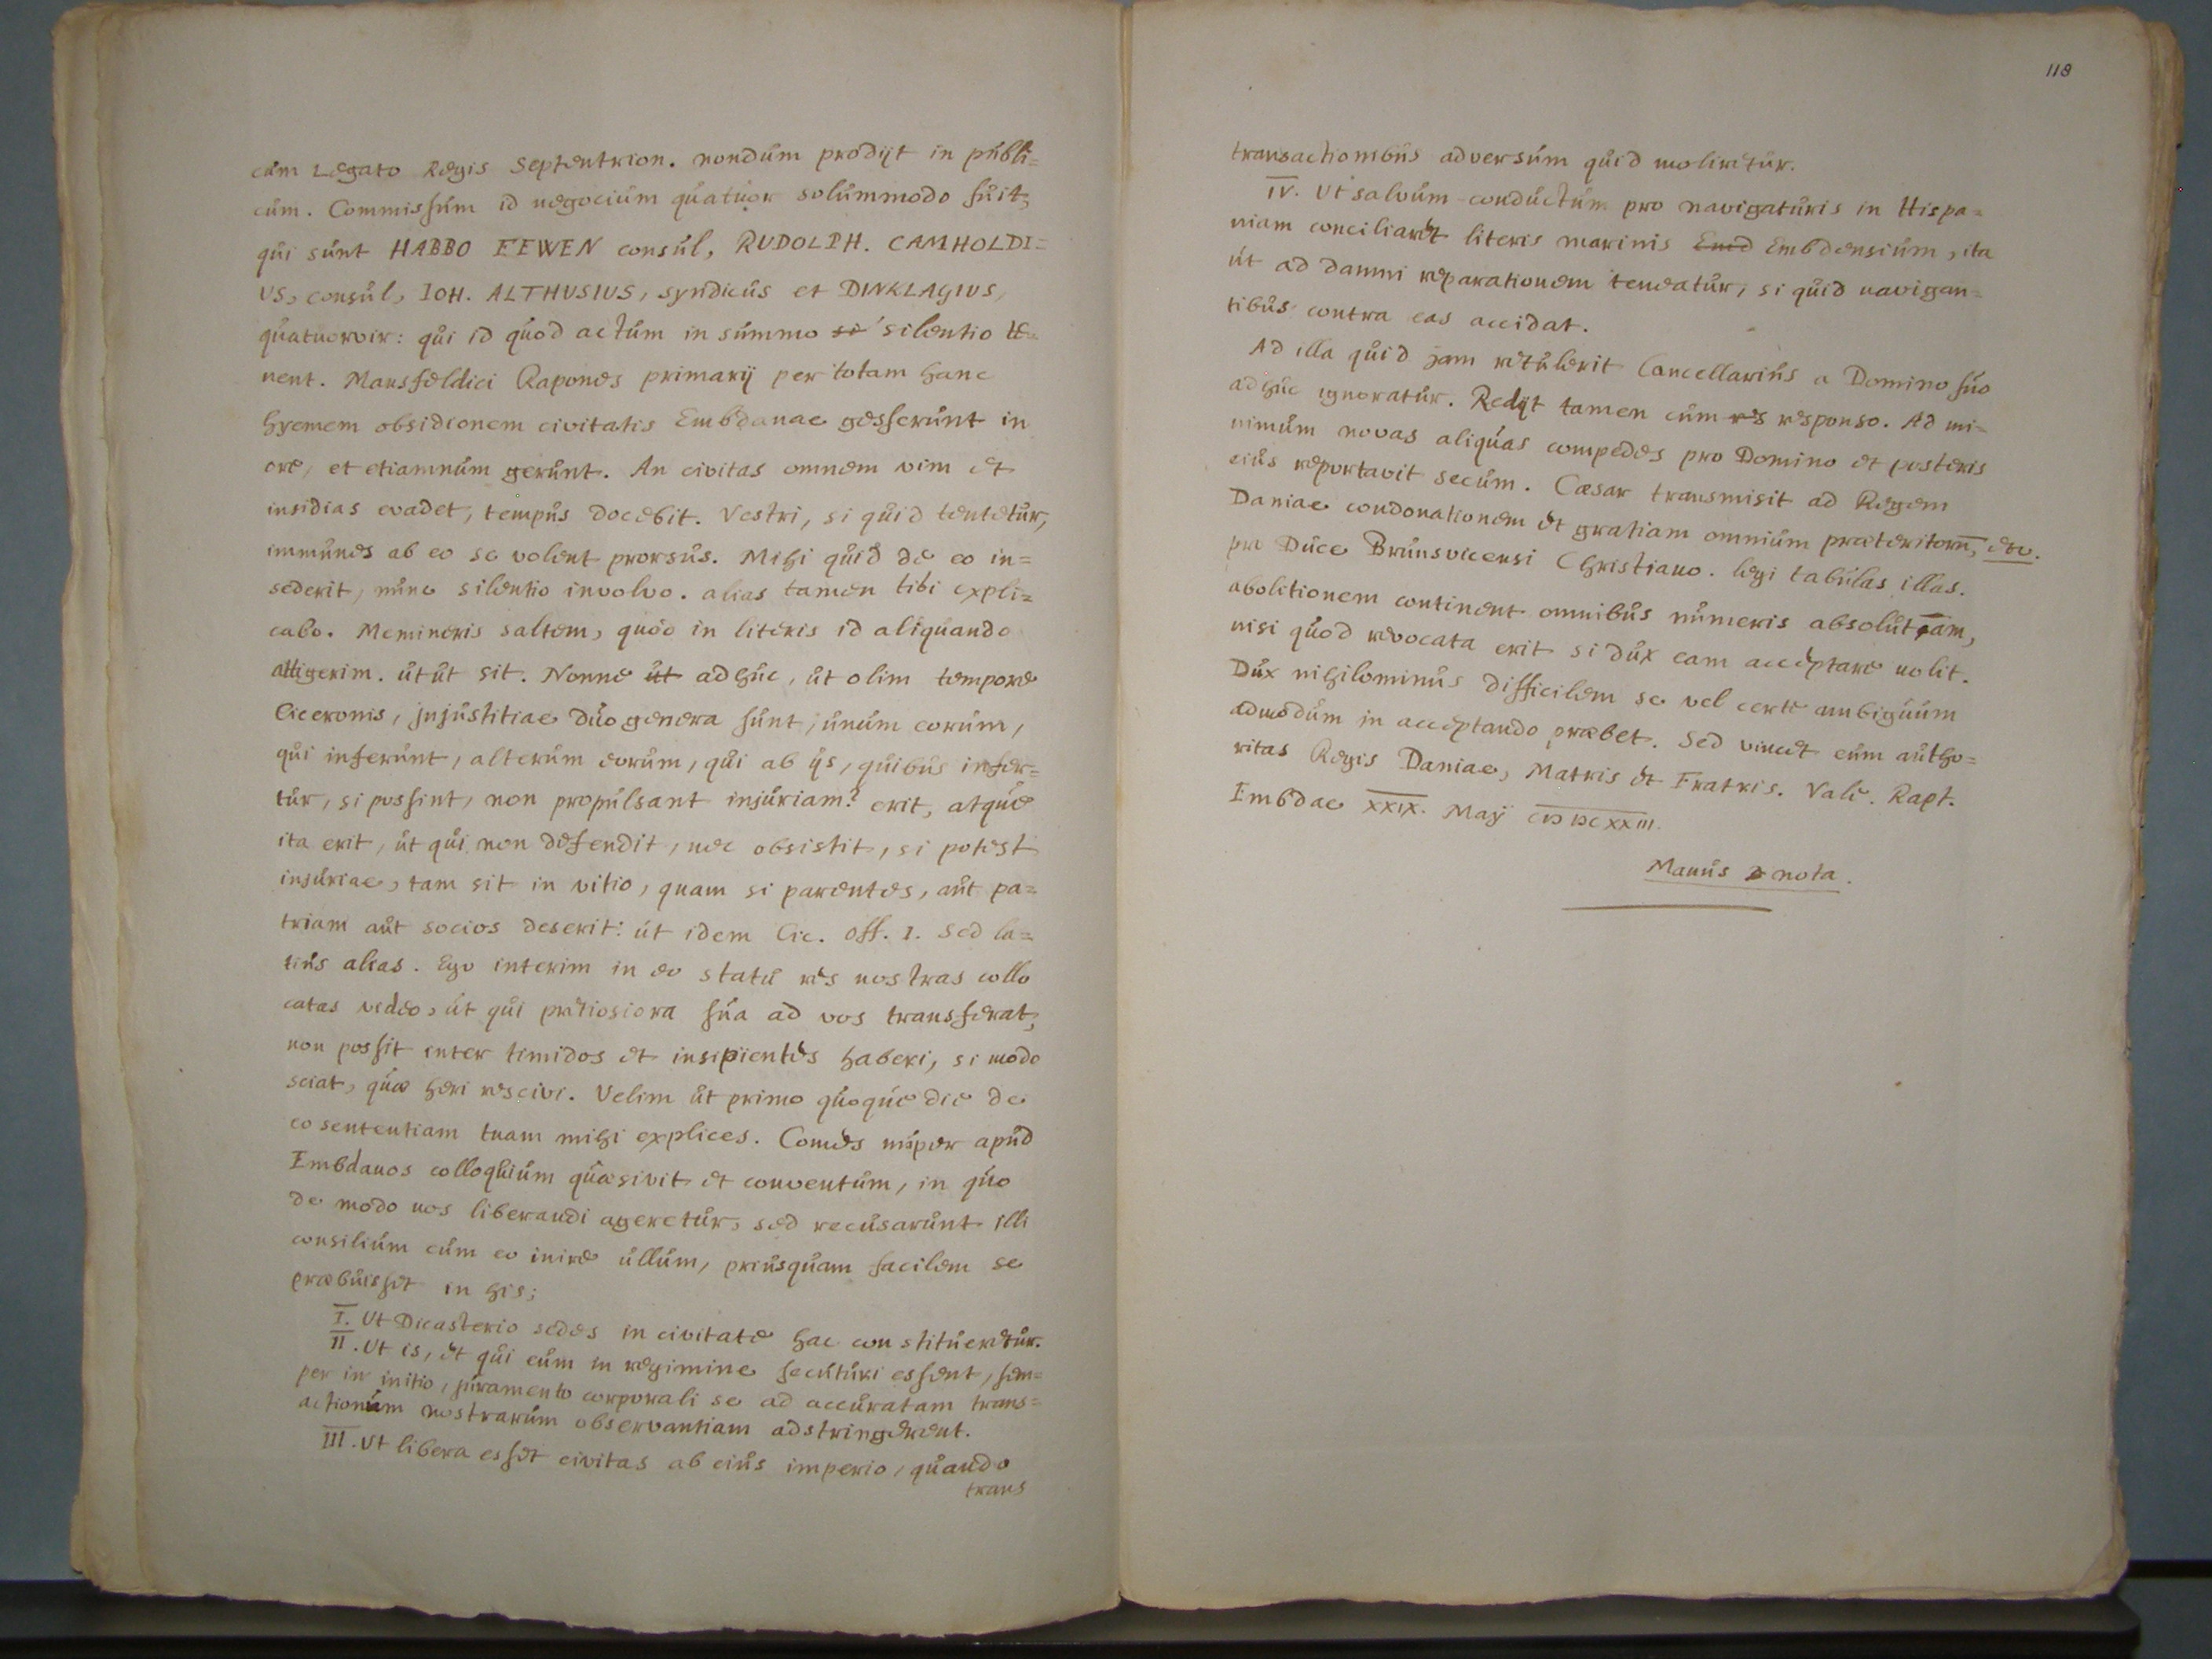 cum Legato Regis Septentrion. nondum prodijt in publi=
cum. Commissum id negocium quatuor solummodo fuit,
qui sunt HABBO EEWEN consul, RUDOLPH. CAMHOLDI=
US, consul, IOH. ALTHUSIUS, syndicus et DINKLAGIUS,
quatuorvir: qui id quod actum in summo si silentio te=
nent. Mansfeldici Rapones primarij per totam hanc
hyemem obsidionem civitatis Embdanae gesserunt in
ore, et etiamnum gerunt. An civitas omnem vim et
insidias evadet, tempus docebit. Vestri, si quid tentetur,
immunes ab eo se volent prorsus. Mihi quid de eo in=
sederit, nunc silentio involvo. alias tamen tibi expli=
cabo. Memineris saltem, quod in literis id aliquando
attigerim. utut sit. Nonne ut adhuc, ut olim tempore
Ciceronis, injustitiae duo genera sunt, unum eorum,
qui inferunt, alterum eorum, qui ab ijs, quibus infer=
tur, si possint, non propulsant injuriam? erit, atque
ita erit, ut qui non defendit, nec obsistit, si potest
injuriae, tam sit in vitio, quam si parentes, aut pa=
triam aut socios deserit: ut idem Cic. Off. 1. Sed la=
tius alias. Ego interim in eo statu res nostras collo
catas video, ut qui pretiosiora sua ad vos transferat,
non possit inter timidos et insipientes haberi, si modo
sciat, quae heri rescivi. Velim ut primo quoque die de
eo sententiam tuam mihi explices. Comes nuper apud
Embdanos colloquium quaesivit et conventum, in quo
de modo nos liberandi ageretur, sed recusarunt illi
consilium cum eo inire ullum, priusquam facilem se
praebuisset in his;
I. Ut Dicasterio sedes in civitate hac constitueretur.
II. Ut is, et qui eum in regimine secuturi essent, sem=
per in initio, juramento corporali se ad accuratam trans=
actionum nostrarum observantiam adstringerent.
III. Ut libera esset civitas ab eius imperio, quando
trans
118
transactionibus adversum quid moliretur.
IV. Ut salvum conductum pro navigaturis in Hispa=
niam conciliaret literis marinis Emd Embdensium, ita
ut ad damni reparationem teneatur, si quid navigan=
tibus contra eas accidat.
Ad illa quid jam retulerit Cancellarius a Domino suo
adhuc ignoratur. Redijt tamen cum res responso. Ad mi=
nimum novas aliquas compedes pro Domino et posteris
eius reportavit secum. Caesar transmisit ad Regem
Daniae condonationem et gratiam omnium praeteritorū, etc.
pro Duce Brunsvicensi Christiano. legi tabulas illas.
abolitionem continent omnibus numeris absolutam,
nisi quod revocata erit si dux eam acceptare nolit.
Dux nihilominus difficilem se vel certe ambiguum
admodum in acceptando praebet. Sed vincet eum autho=
ritas Regis Daniae, Matris et Fratris. Vale. Rapt.
Embdae XXIX. Maij CIƆ IƆC XXIII.
Manus nota.